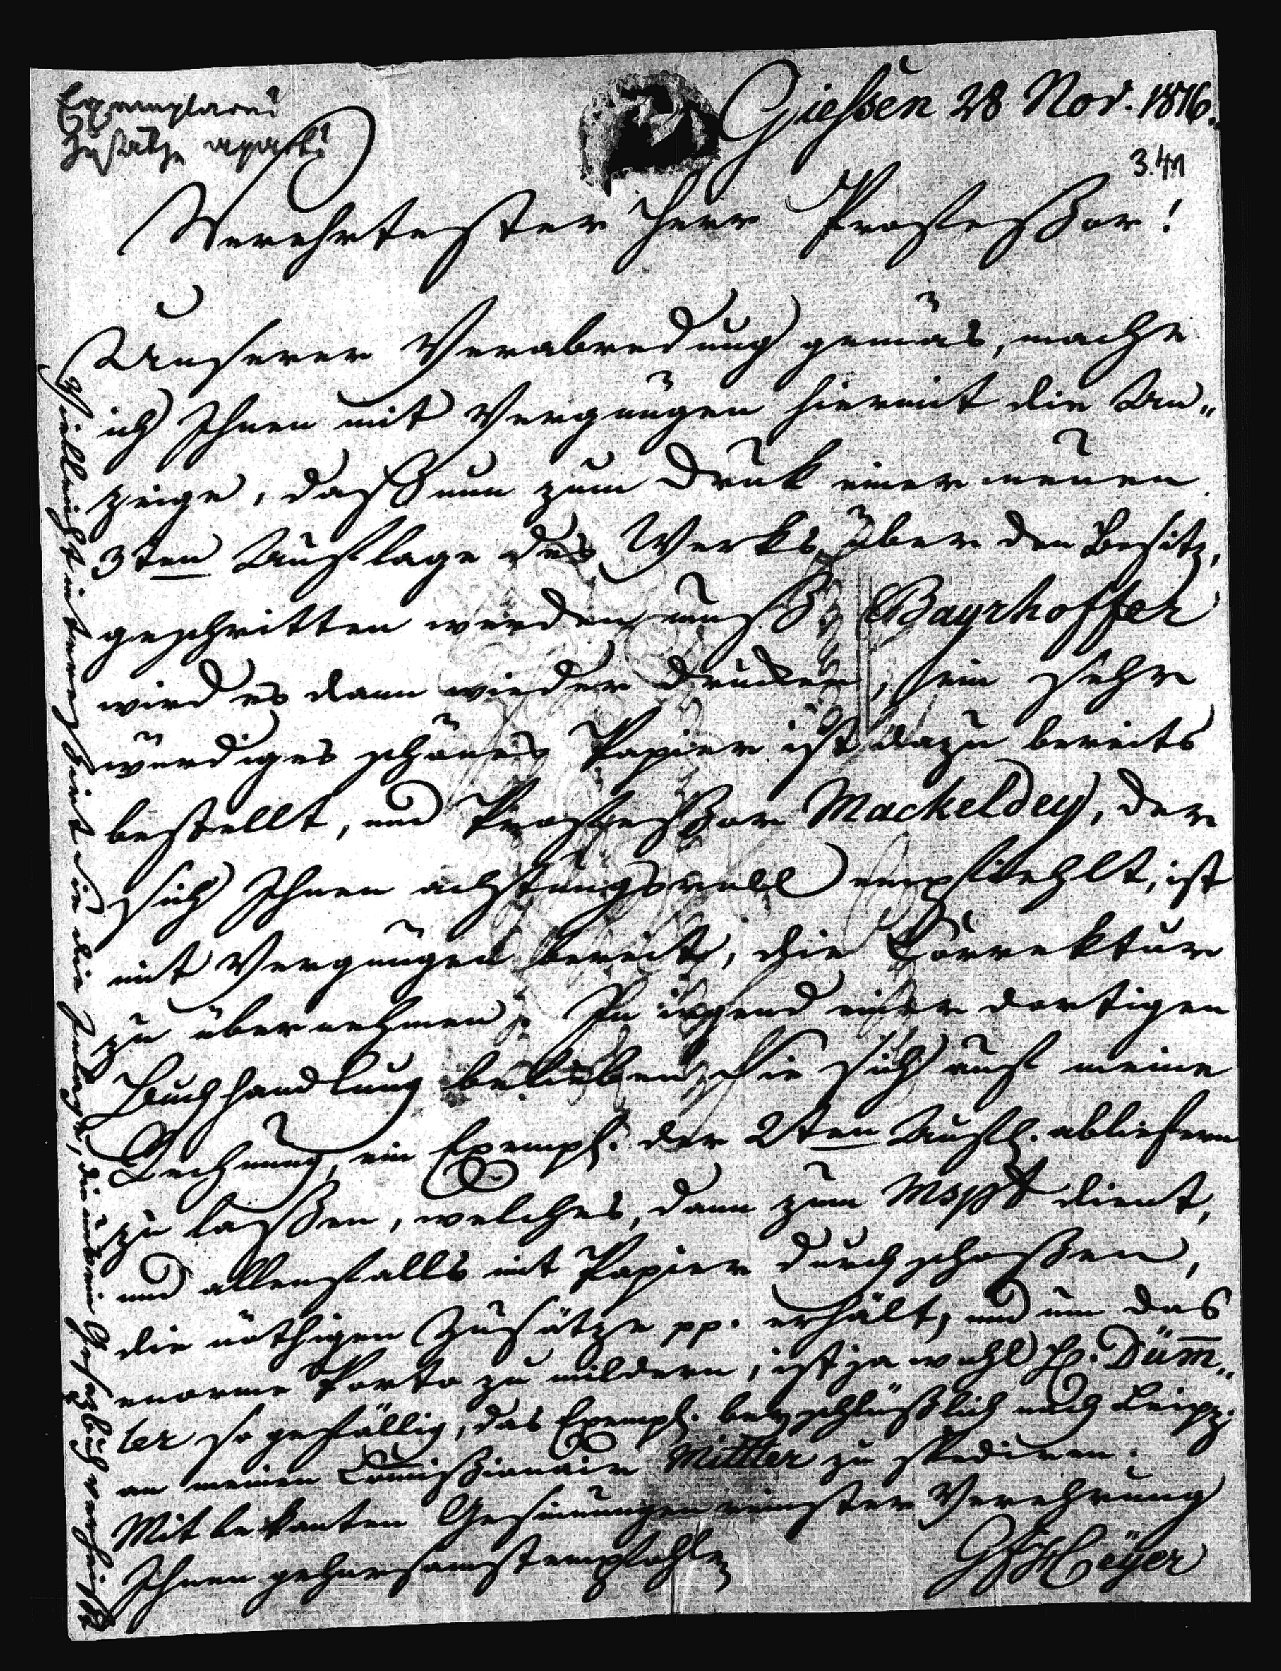 Exemplare?
Zusätze apart?
Giessen 28 Nov. 1816.
3.4/1
Verehrtester Herr Professor!
Unserer Verabredung gemäs, mache
ich Ihnen mit Vergnügen hiermit die An„
zeige, daß nun zum Druk einer neuen
3ten Auflage des Werks über den Besitz,
geschritten werden muß. Bayrhoffer
wird es dann wieder drucken, ein sehr
würdiges schönes Papier ist dazu bereits
bestellt, und Professor Mackeldey, der
sich Ihnen achtungsvoll empfiehlt, ist
mit Vergnügen bereit, die Correktur
zu übernehmen. In irgend einer dortigen
Buchhandlung belieben Sie sich auf meine
Rechnung, ein Exempl. der 2ten Aufl. abliefern
zu laßen, welches, dann zum Mspt dient,
und allenfalls mit Papier durchschoßen,
die nöthigen Zusätze pp. erhält, und um das
enorme Porto zu mildern, ist ja wohl H. Düm„
ler so gefällig, das Exempl. beyschlüßlich nach Leipz.
an meinen Commißionair Mittler zu spediren.
Mit bekanten Gesinnungen reinster Verehrung
Ihnen gehorsamst empfohlen
GFHeyer
Vielleicht interessirt Sie die Inlage, die unser Gesezbuch